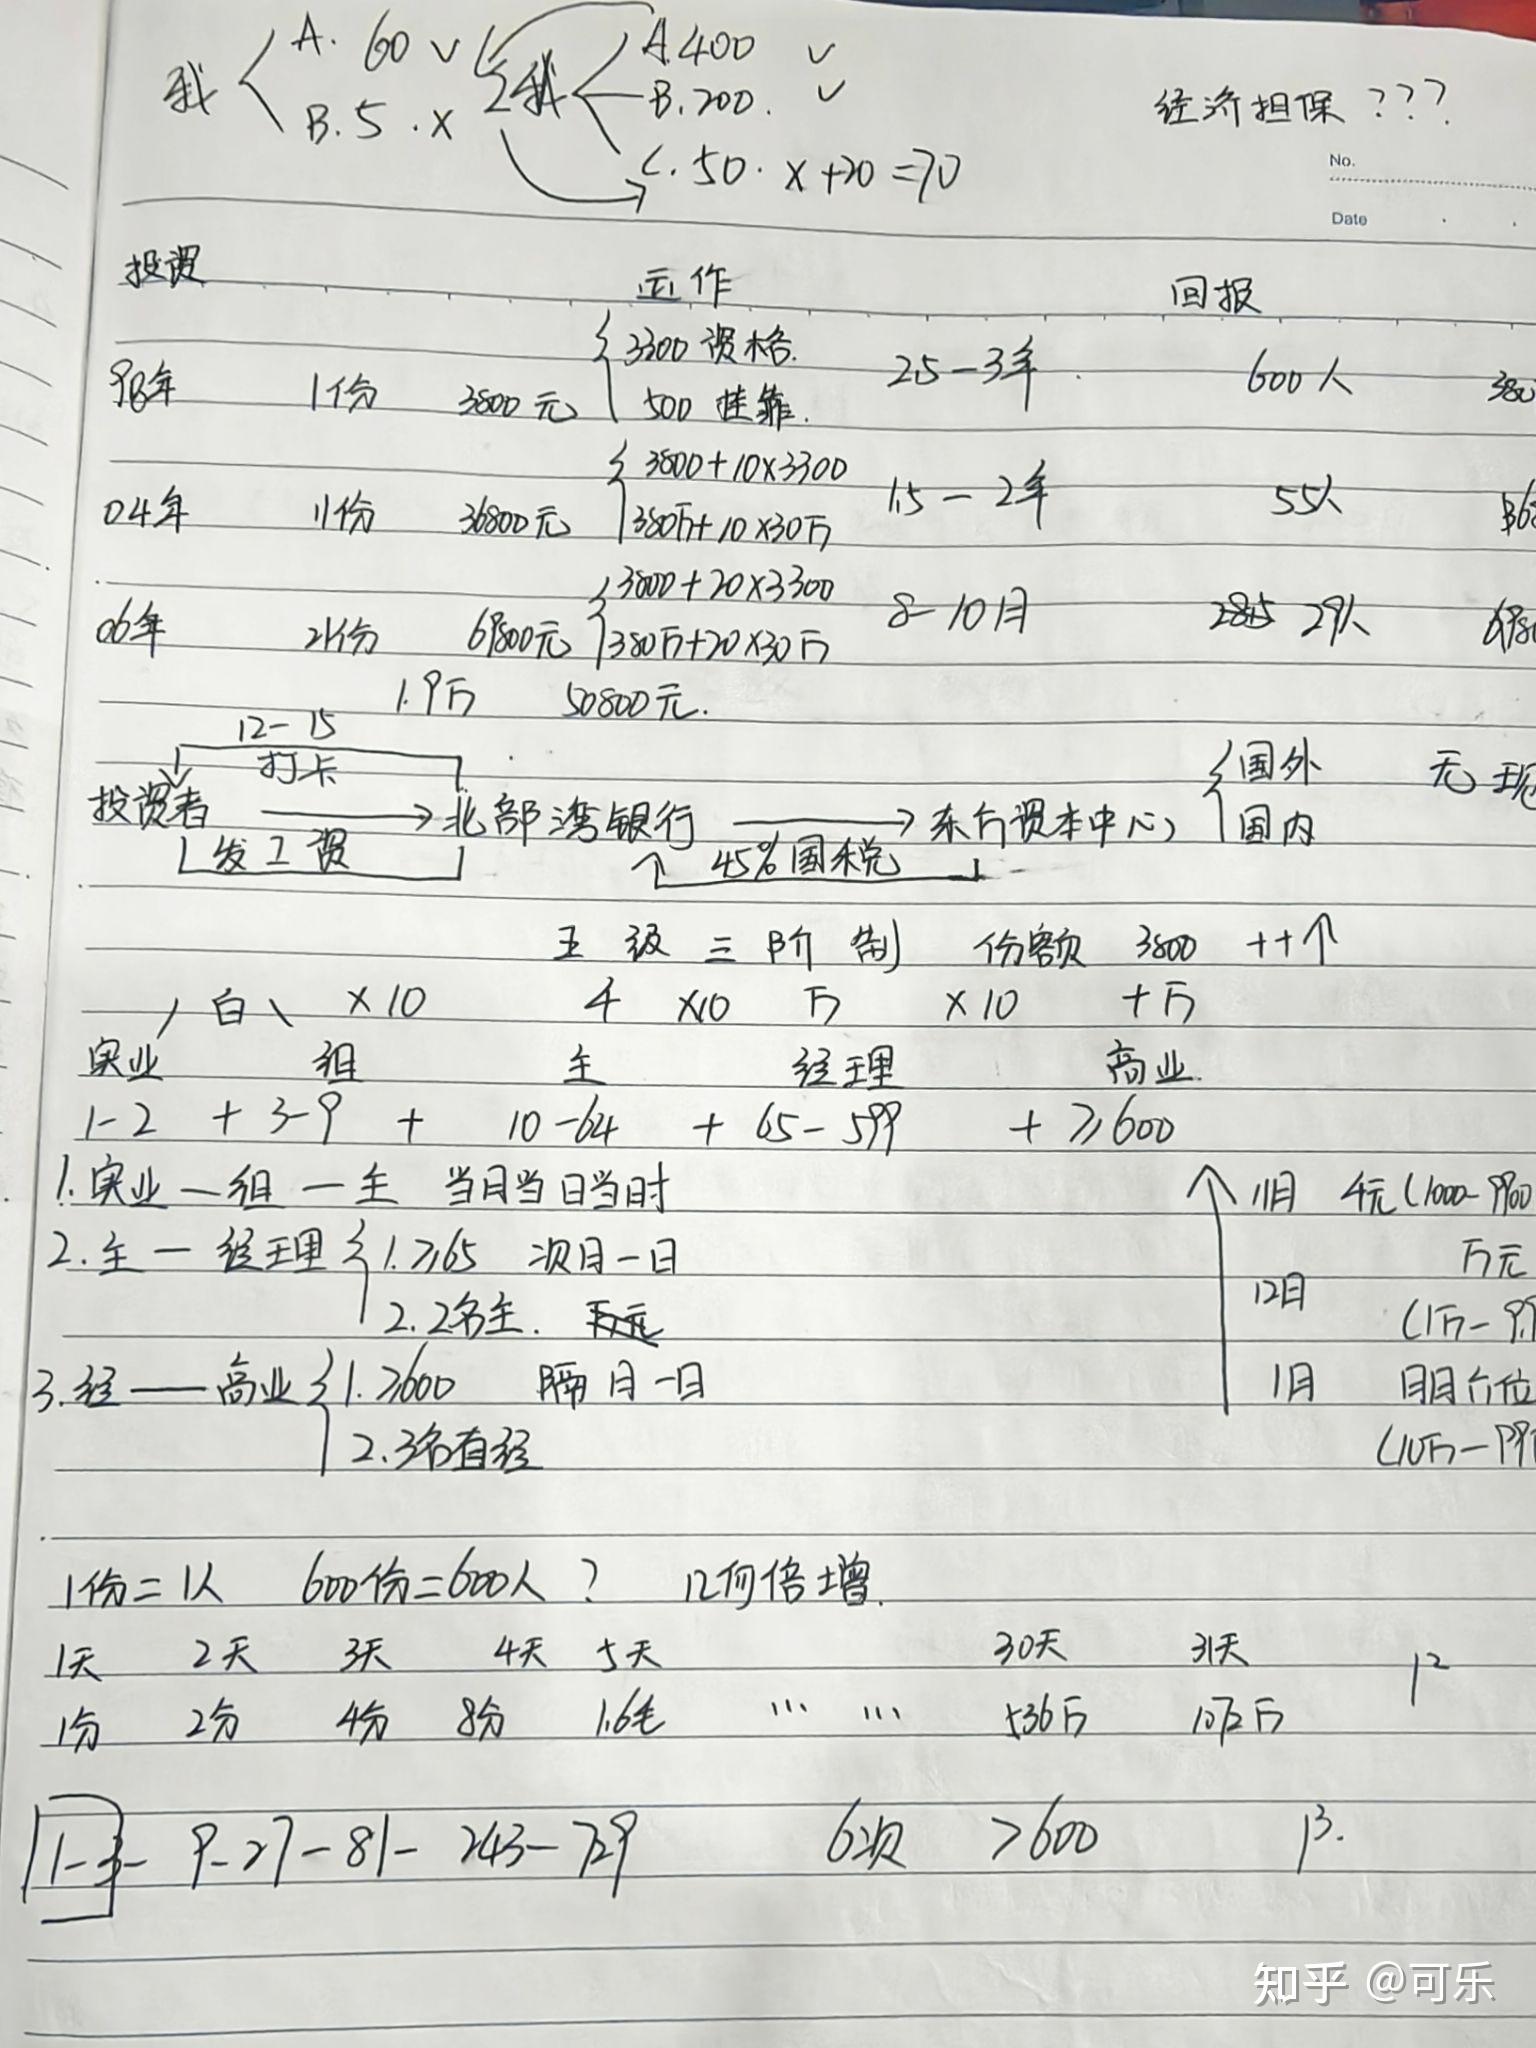 我 A. 60 √ 我 A.400 √
B. 5. x B.200. √
经济担保???
C. 50. x+20=70
No.
Date
投资 运作 回报
98年 1份 3800元 3300资格. 2.5-3年. 600人 380
500挂靠.
04年 11份 36800元 3800+10×3300 1.5-2年 55人 368
380万+10×30万
06年 21份 69800元 3800+20×3300 8-10月 28.5 29人 6980
380万+20×30万
1.9万 50800元.
12-15
打卡
投资者 北部湾银行 东方资本中心 国外 无现
国内
发工资 45%国税
五级三阶制 份额 3800 ++↑
百 ×10 千 ×10 万 ×10 十万
实业 组 主 经理 高业.
1-2 + 3-9 + 10-64 + 65-599 + ≥600
1.实业-组-主 当月当日当时 11月 千元(1000-9900
2.主-经理 1.≥65 次月一日 万元
2.2名主. 12月 (1万-9.9
3.经-高业 1.≥600 隔月一日 1月 月月六位
2.3名直经 (10万-99万
1份=1人 600份=600人? 几何倍增.
1天 2天 3天 4天 5天 30天 31天 1²
1分 2分 4分 8分 1.6毛 ... ... 536万 1072万
1-3-9-27-81-243-729 6次 >600 1³.
知乎 @可乐